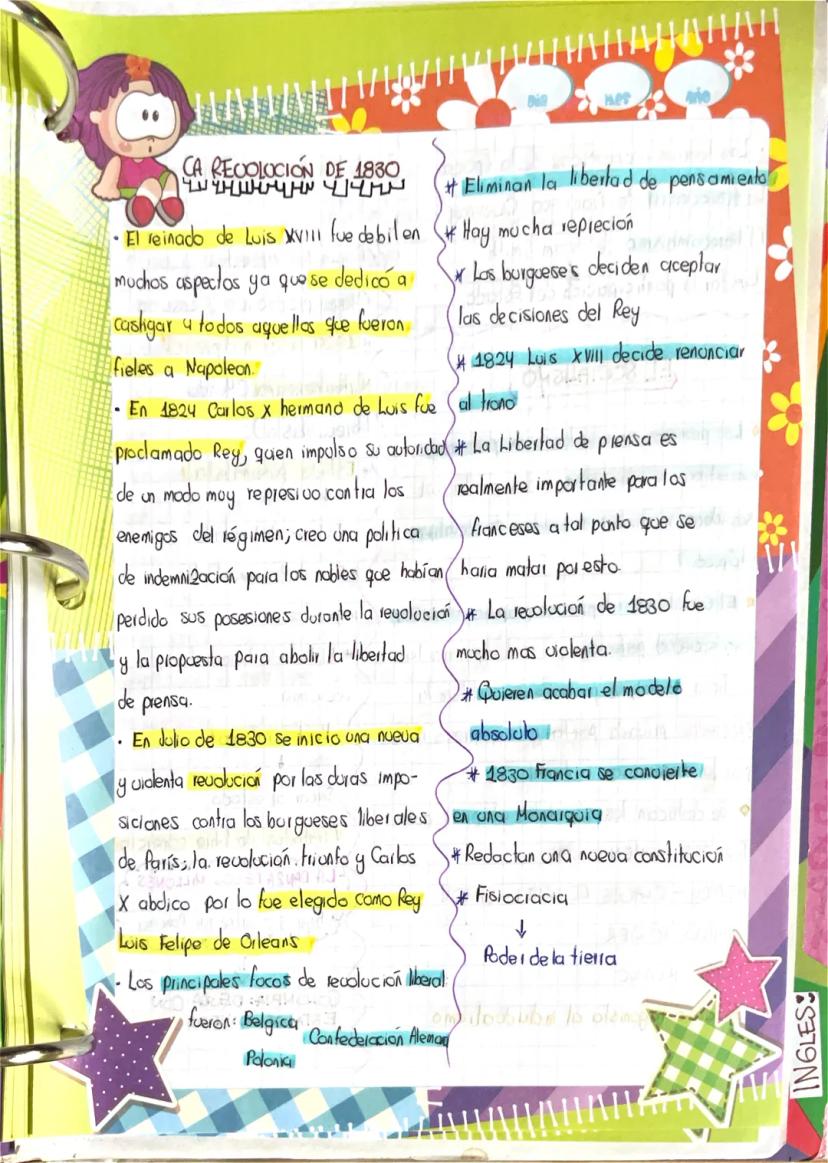 Día Mes Año
LA REVOLUCIÓN DE 1830
· El reinado de Luis XVIII fue debil en
muchos aspectos ya que se dedicó a
castigar a todos aquellos que fueron
fieles a Napoleon.
· En 1824 Carlos X hermano de Luis fue
proclamado Rey, quien impulso su autoridad
de un modo muy represivo contra los
enemigos del régimen; creo una politica
de indemnización para los nobles que habían
perdido sus posesiones durante la revolución
y la propuesta para abolir la libertad
de prensa.
· En Julio de 1830 se inicio una nueva
y violenta revolución por las duras impo-
siciones contra los burgueses liberales
de París; la revolución triunfo y Carlos
X abdico por lo fue elegido como Rey
Luis Felipe de Orleans
· Los principales focos de revolución liberal
fueron: Belgica
Confederación Aleman
Polonia
* Eliminan la libertad de pensamiento
* Hay mucha repreción
* Los burgueses deciden aceptar
las decisiones del Rey
* 1824 Luis XVIII decide renunciar
al trono
* La Libertad de prensa es
realmente importante para los
franceses a tal punto que se
haria matar por esto.
* La revolución de 1830 fue
mucho mas violenta.
* Quieren acabar el modelo
absoluto
* 1830 Francia se convierte
en una Monarquia
* Redactan una nueva constitución
* Fisiocracia
↓
Poder de la tierra
INGLES: